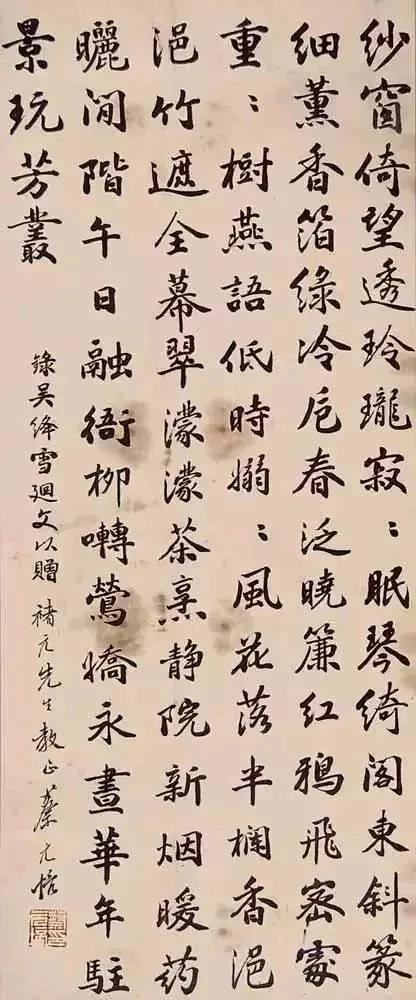 紗窗倚望透玲瓏寂〻眠琴綺閣東斜篆
細薰香箔綠冷卮春泛曉簾紅鴉飛密處
重〻樹燕語低時嫋〻風花落半欄香浥
浥竹遮全幕翠濛濛茶烹静院新烟暖药
曬閒階午日融衙柳囀鶯嬌永晝華年駐
景玩芳叢
錄吴絳雪迴文以贈 褚元先生教正 蔡元培